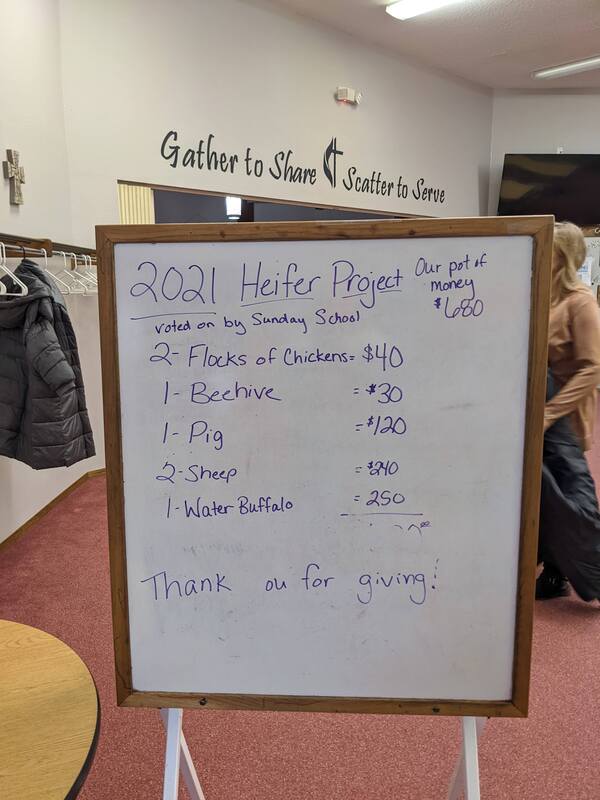 Gather to Share Scatter to Serve
2021 Heifer Project
Our pot of
money
$680
voted on by Sunday School
2- Flocks of Chickens= $40
1- Beehive = $30
1- Pig = $120
2- Sheep = $240
1- Water Buffalo = 250
Thank ou for giving!